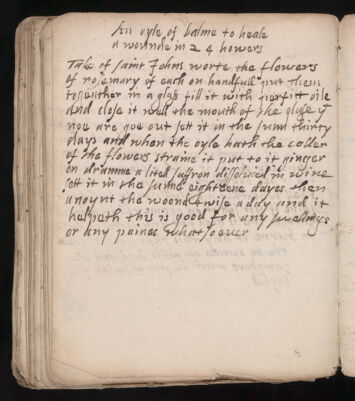 An oyle of balme to heale
a wounde in 24 howers
Take of saint Johns worte the flowers
of rosemary of each on handfull put them
together in a glas fill it with perfitt oile
and close it well the mouth of the glase
noe are goe out sett it in the sunn thirty
days and when the oyle hath the coller
of the flowers straine it put to it ginger
on dramme a litel saffron dissolved in wine
sett it in the sunne eighteene dayes then
anoynt the woond twise a day and it
helpeth this is good for any swelings
or any paines whatsoever